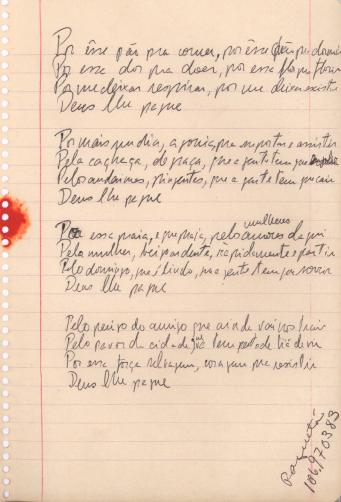 Por êsse pão pra comer, por êsse chão pra dormir
Por essa dor pra doer, por essa flor pra florir
Por me deixar respirar, por me deixar existir
Deus lhe pague
Por mais um dia, agonia, pra suportar e assistir
Pela cachaça, de graça, que a gente tem que engolir
Pelos andaimes, pingentes, que a gente tem que cair
Deus lhe pague
Por essa praia, e que praia, pelas mulheres daqui
Pela mulher, rapidamente e partir
Pelo domingo, que é lindo, a gente tem que
Deus lhe pague
Pelo amigo que ainda vai nos trair
Pelo pavor da cidade, já tem de
Por essa força selvagem, coragem pra resistir
Deus lhe pague
106.970383